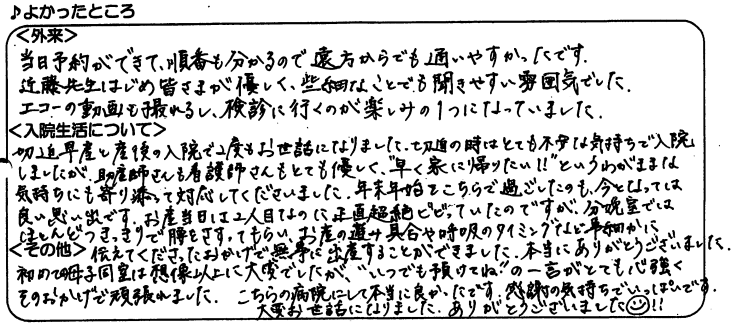 ♪よかったところ
<外来>
当日予約ができて、順番も分かるので遠方からでも通いやすかったです。
近藤先生はじめ皆さまが優しく、些細なことでも聞きやすい雰囲気でした。
エコーの動画も撮れるし、検診に行くのが楽しみの1つになっていました。
<入院生活について>
切迫早産と産後の入院で2度もお世話になりました。切迫の時はとても不安な気持ちで入院
しましたが、助産師さんも看護師さんもとても優しく、"早く家に帰りたい!!"というわがままな
気持ちにも寄り添って対応してくださいました。年末年始をこちらで過ごしたのも、今となっては
良い思い出です。お産当日は2人目なのに正直超絶ビビっていたのですが、分娩室では
ほとんどつきっきりで腰をさすってもらい、お産の進み具合や呼吸のタイミングなど事細かに
<その他> 伝えてくださったおかげで無事に出産することができました。本当にありがとうございました。
初めての母子同室は想像以上に大変でしたが、"いつでも預けてね"の一言がとても心強く
そのおかげで頑張れました。 こちらの病院にして本当に良かったです。感謝の気持ちでいっぱいです。
大変お世話になりました。ありがとうございました☺!!